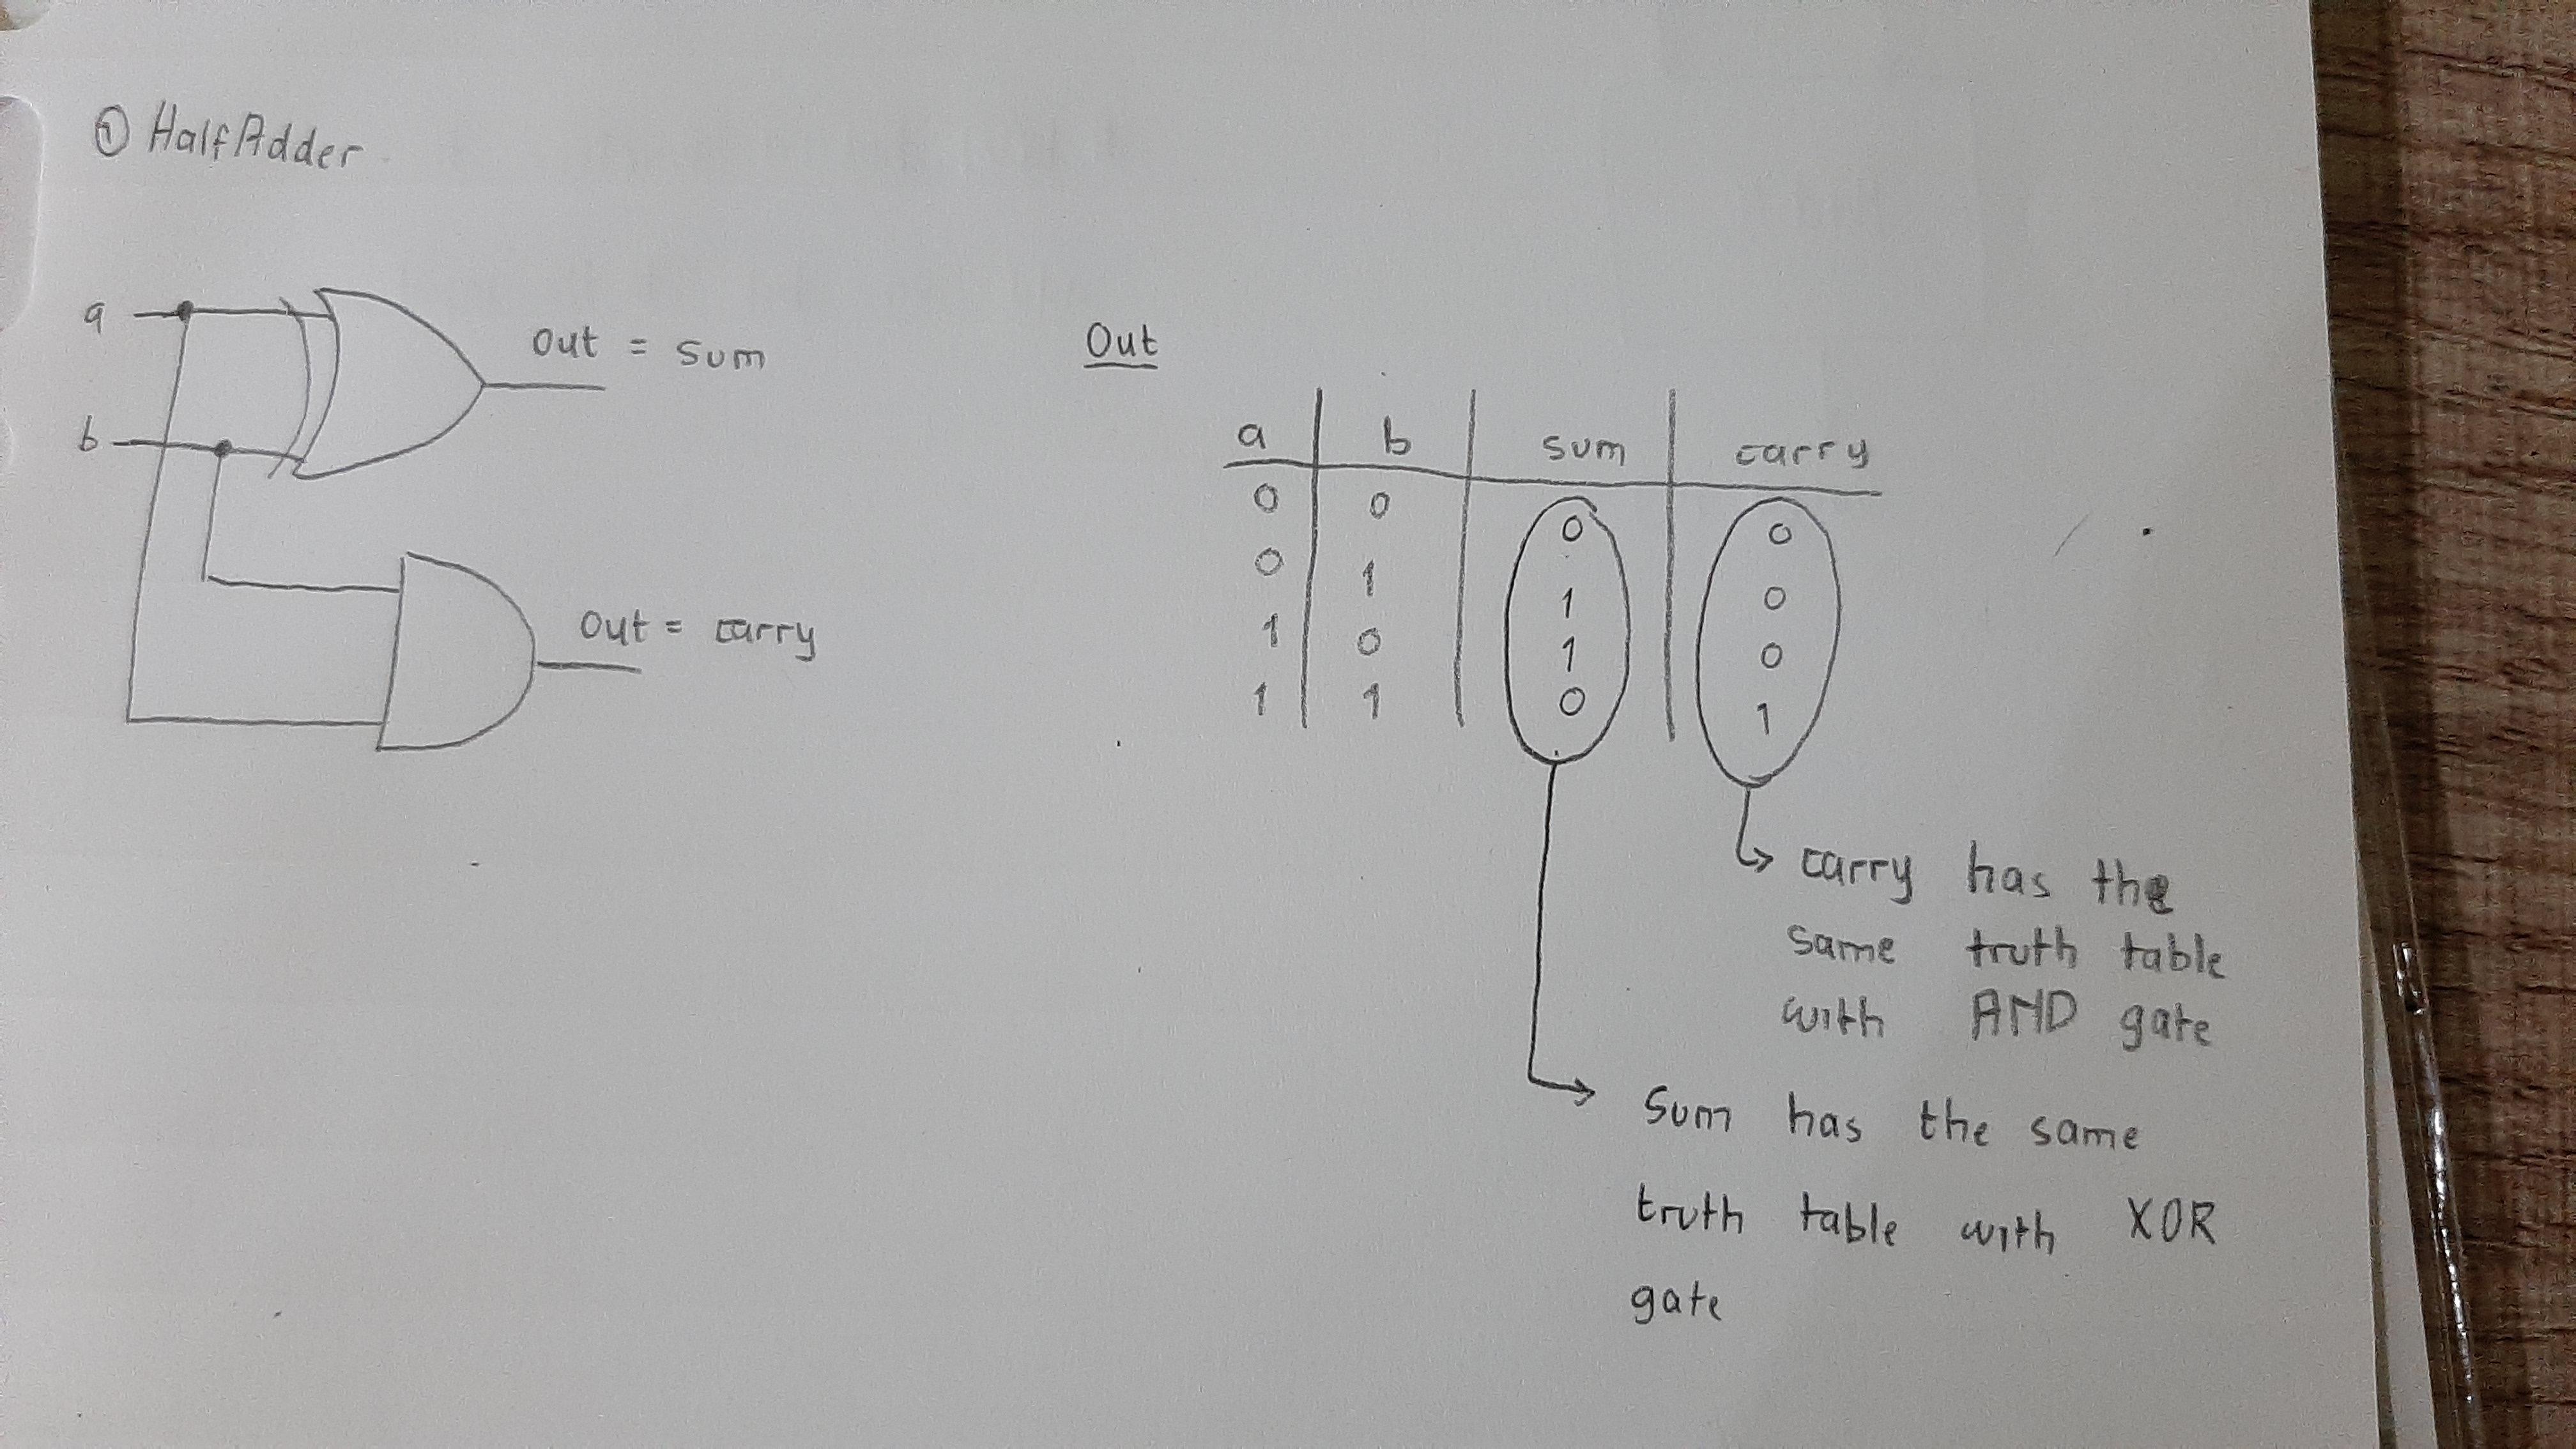 ① HalfAdder
a
b
Out = sum
Out = carry
Out
a b sum carry
0 0 0 0
0 1 1 0
1 0 1 0
1 1 0 1
carry has the
same truth table
with AND gate
Sum has the same
truth table with XOR
gate